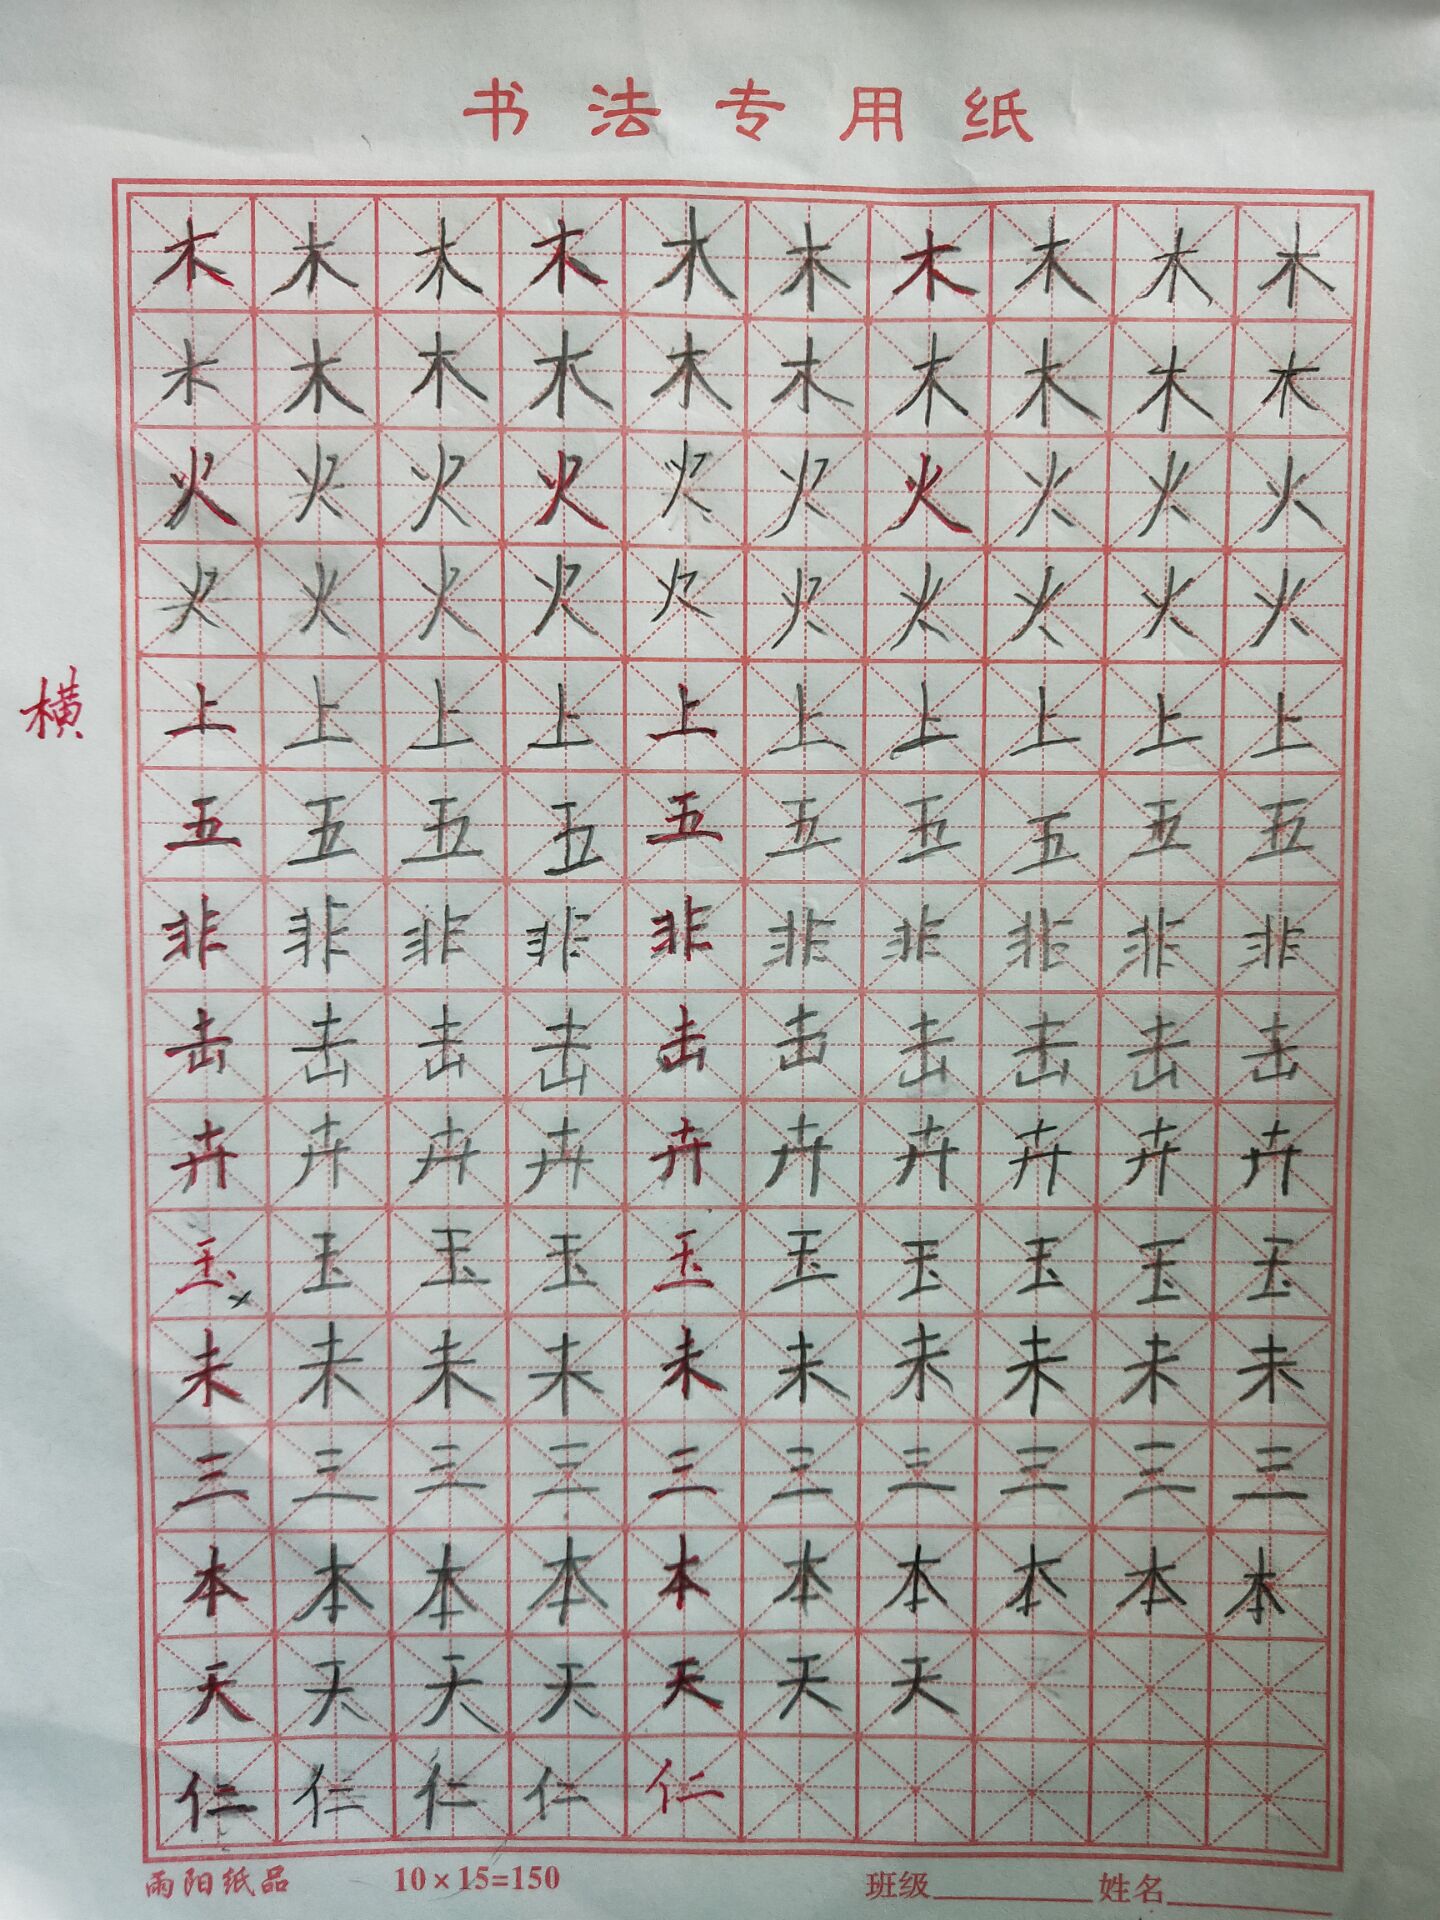 书法专用纸
木木木木木木木木木木
木木木木木木木木木木
火火火火火火火火火火
火火火火火火火火火火
横
上上上上上上上上上上
五五五五五五五五五五
非非非非非非非非非非
击击击击击击击击击击
卉卉卉卉卉卉卉卉卉卉
玉玉玉玉玉玉玉玉玉玉
未未未未未未未未未未
三三三三三三三三三三
本本本本本本本本本本
天天天天天天天
仁仁仁仁仁
雨阳纸品 10×15=150 班级 姓名